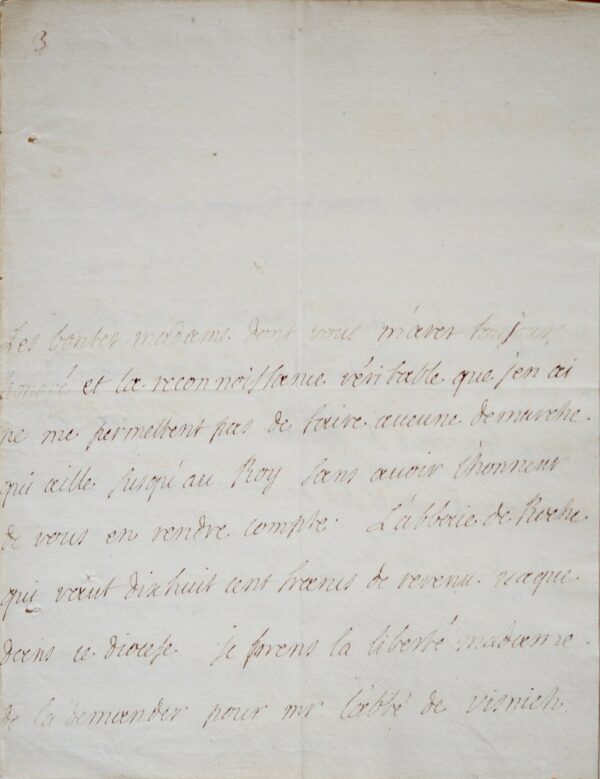 3
Les bontes madame dont vous m'avez toujours
honoré et la reconnoissance véritable que j'en ai
ne me permettent pas de faire aucune demarche
qui aille jusqu'au Roy sans avoir l'honneur
de vous en rendre compte. L'abbaie de Roche
qui vaut dixhuit cent francs de revenu vaque
dans ce diocese je prens la liberté madame
de la demander pour mr l'abbé de visnich